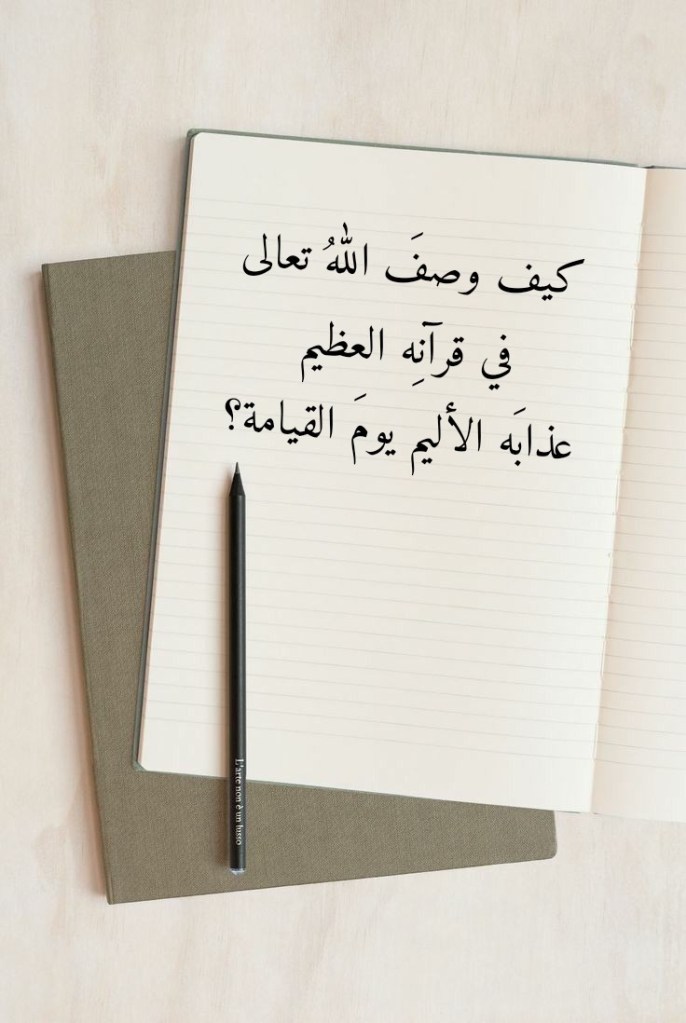 كيف وصفَ اللهُ تعالى
في قرآنِه العظيم
عذابَه الأليم يومَ القيامة؟
L'arte non è un lusso